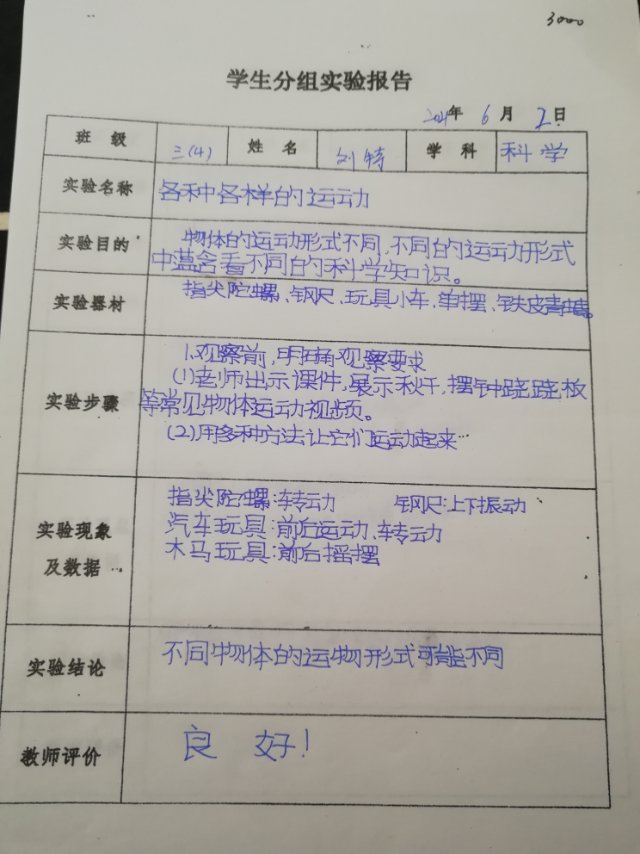 3000
学生分组实验报告
2021年 6 月 2 日
班 级 三(4) 姓 名 刘特 学 科 科学
实验名称 各种各样的运动
实验目的 物体的运动形式不同,不同的运动形式
中蕴含着不同的科学知识。
实验器材 指尖陀螺、钢尺、玩具小车、单摆、铁皮青蛙。
实验步骤 1.观察前,明确观察要求
(1)老师出示课件,展示秋千,摆钟跷跷板
等常见物体运动视频。
(2)用多种方法让它们运动起来…
实验现象
及数据
指尖陀螺:转动 钢尺:上下振动
汽车玩具:前后运动、转动
木马玩具:前后摇摆
实验结论 不同物体的运物形式可能不同
教师评价 良 好!